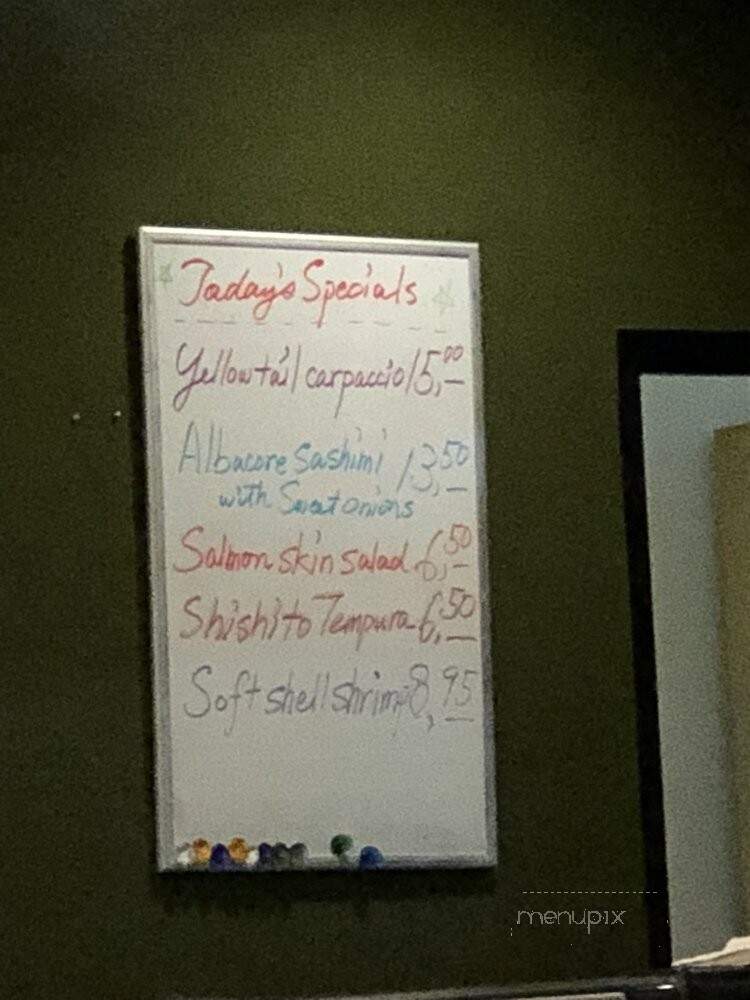 Today's Specials
Yellowtail carpaccio 15,00
Albacore Sashimi 13,50
with Sweet onions
Salmon skin salad 6,50
Shishito Tempura 6,50
Soft shell shrimp 8,95
menupix